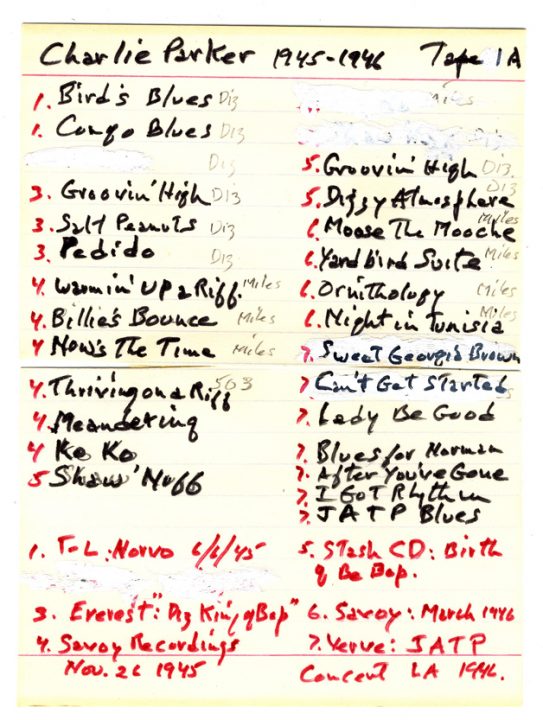 Charlie Parker 1945-1946 Tape 1A
1. Bird's Blues Diz
1. Congo Blues Diz
Diz
3. Groovin' High Diz
3. Salt Peanuts Diz
3. Pedido Diz
4. Warmin' Up a Riff. Miles
4. Billie's Bounce Miles
4 Now's The Time Miles
4. Thriving on a Riff 503
4. Meandering
4 Ko Ko
5 Shaw 'Nuff
Miles
5. Groovin' High Diz
5. Dizzy Atmosphere Diz
6. Moose The Mooche Miles
6. Yardbird Suite Miles
6. Ornithology Miles
6. Night in Tunisia Miles
7. Sweet Georgia Brown
7. Can't Get Started
7. Lady Be Good
7. Blues for Norman
7. After You've Gone
7. I Got Rhythm
7. JATP Blues
1. T-L: Norvo 6/6/45
3. Everest: "Diz King of Bop"
4. Savoy Recordings
Nov. 26 1945
5. Stash CD: Birth
of Be Bop.
6. Savoy: March 1946
7. Verve: JATP
Concert LA 1946.